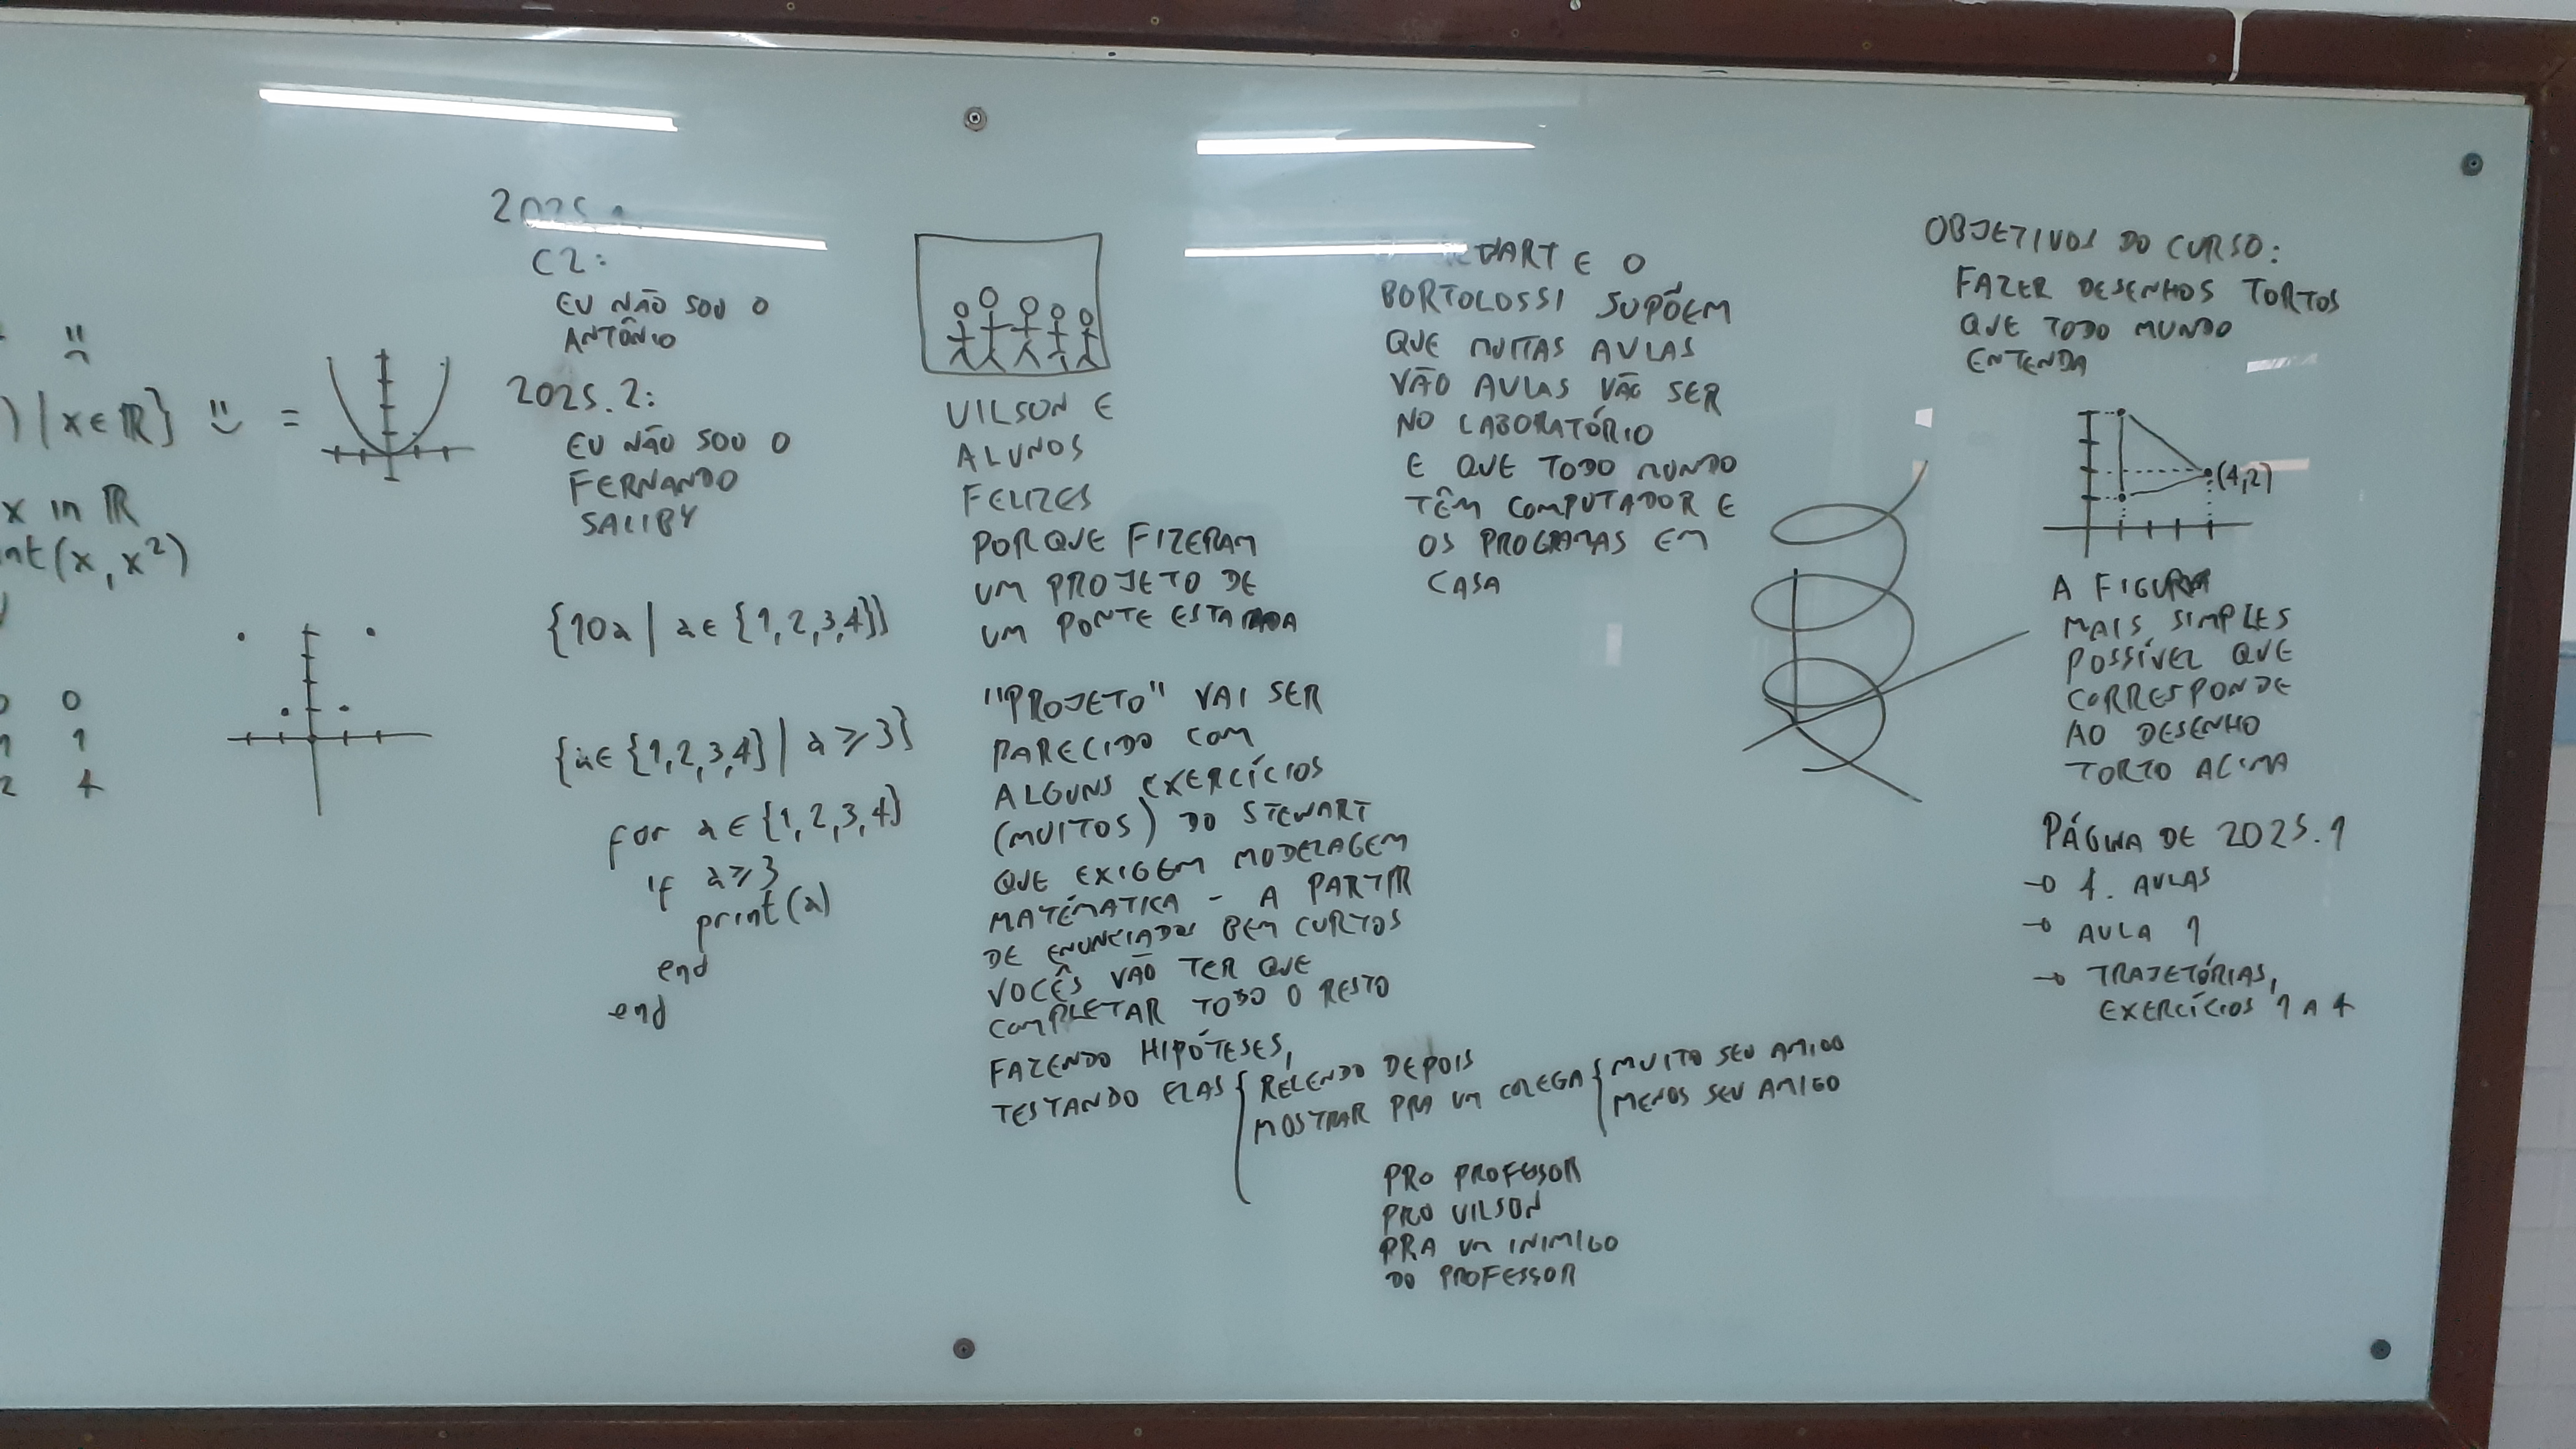 ) | x ∈ ℝ} =
x in ℝ
nt(x, x²)
0
1 1
2 4
C2:
EU NÃO SOU O
ANTÔNIO
2025.2:
EU NÃO SOU O
FERNANDO
SALIBY
{10a | a ∈ {1,2,3,4}}
{a ∈ {1,2,3,4} | a ⩾ 3}
for a ∈ {1,2,3,4}
if a ⩾ 3
print(a)
end
end
VILSON E
ALUNOS
FELIZES
PORQUE FIZERAM
UM PROJETO DE
UM PONTE ESTAIADA
"PROJETO" VAI SER
PARECIDO COM
ALGUNS EXERCÍCIOS
(MUITOS) DO STEWART
QUE EXIGEM MODELAGEM
MATEMÁTICA - A PARTIR
DE ENUNCIADOS BEM CURTOS
VOCÊS VÃO TER QUE
COMPLETAR TODO O RESTO
FAZENDO HIPÓTESES,
TESTANDO ELAS { RELENDO DEPOIS
MOSTRAR PRA UM COLEGA { MUITO SEU AMIGO
MENOS SEU AMIGO
PRO PROFESSOR
PRO VILSON
PRA UM INIMIGO
DO PROFESSOR
WART E O
BORTOLOSSI SUPÕEM
QUE MUITAS AULAS
VÃO AULAS VÃO SER
NO LABORATÓRIO
E QUE TODO MUNDO
TÊM COMPUTADOR E
OS PROGRAMAS EM
CASA
OBJETIVOS DO CURSO:
FAZER DESENHOS TORTOS
QUE TODO MUNDO
ENTENDA
(4,2)
A FIGURA
MAIS SIMPLES
POSSÍVEL QUE
CORRESPONDE
AO DESENHO
TORTO ACIMA
PÁGINA DE 2025.1
→ 4. AULAS
→ AULA 1
→ TRAJETÓRIAS,
EXERCÍCIOS 1 A 4